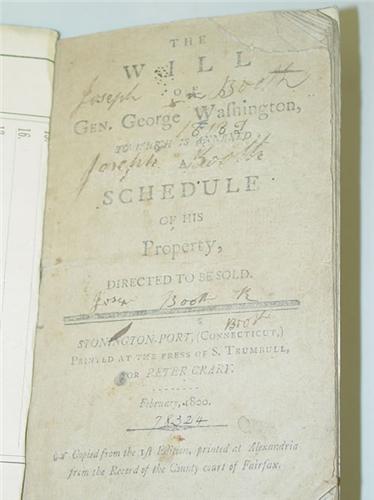 THE
WILL
OF
Joseph Booth
GEN. GEORGE WASHINGTON,
TO WHICH IS ANNEXED,
A
Joseph Booth
SCHEDULE
OF HIS
Property,
DIRECTED TO BE SOLD.
Booth
STONINGTON-PORT, (CONNECTICUT,)
PRINTED AT THE PRESS OF S. TRUMBULL,
FOR PETER CRARY.
February, 1800.
78324
Copied from the 1st Edition, printed at Alexandria
from the Record of the County court of Fairfax.
16